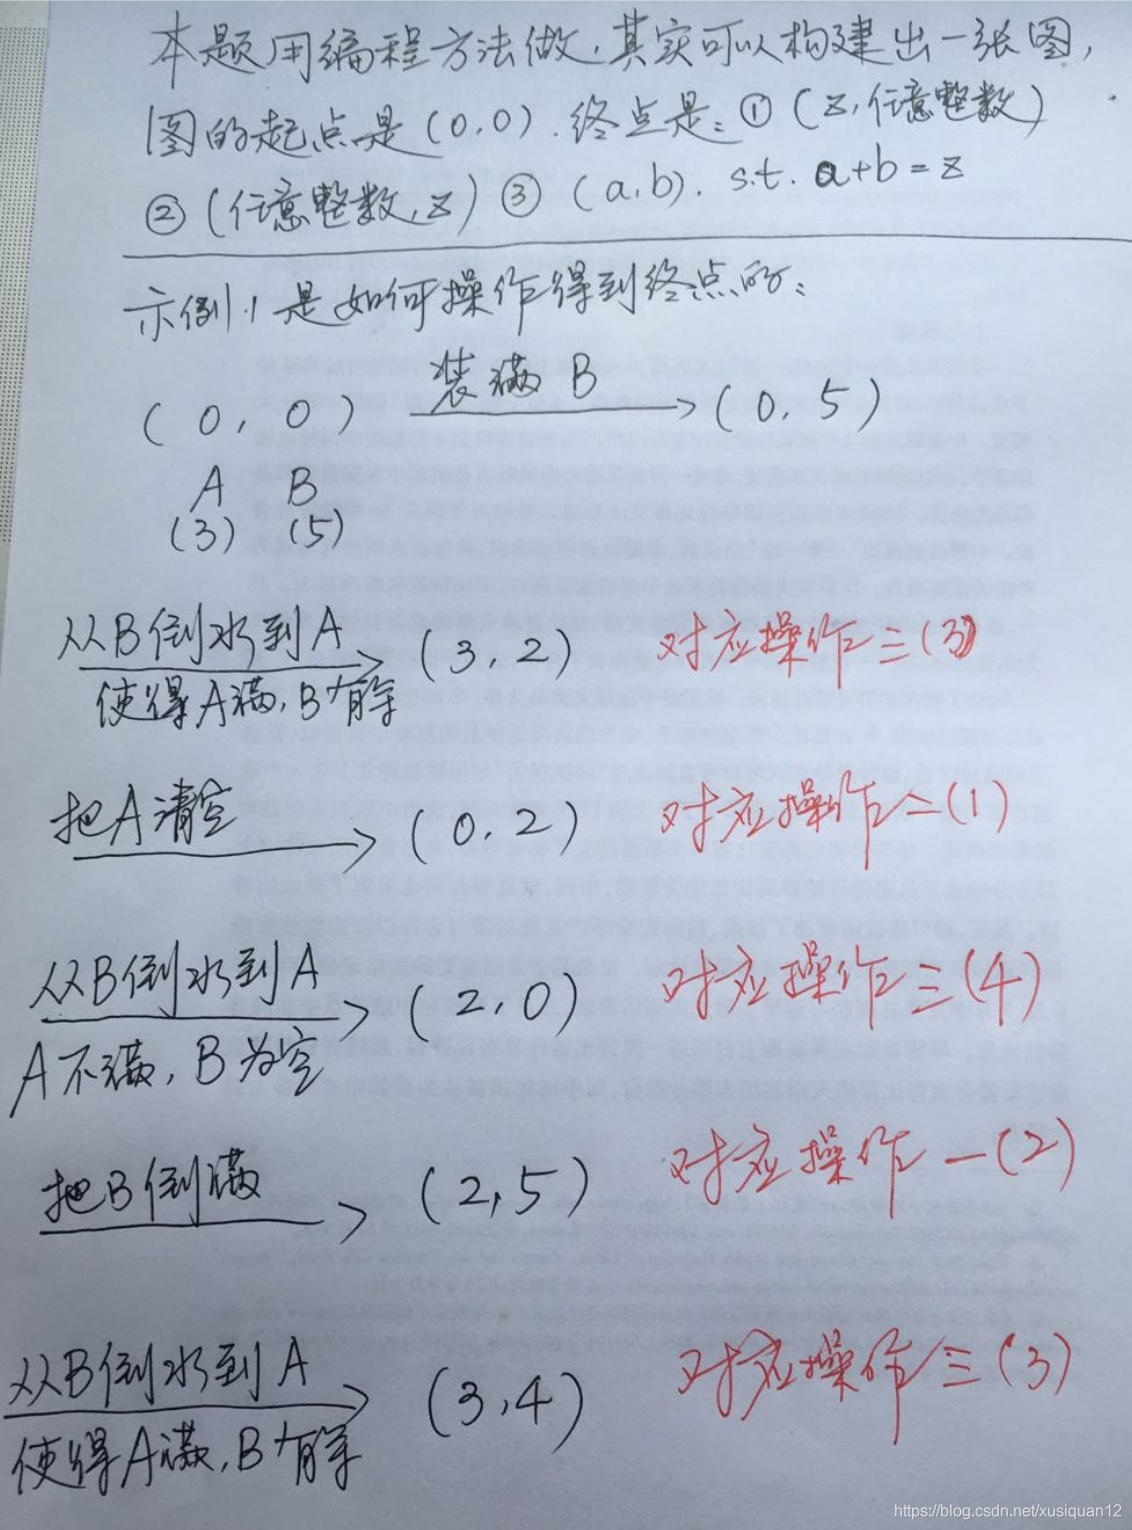 本题用编程方法做，其实可以构建出一张图，
图的起点是(0,0)．终点是：①(z,任意整数)
②(任意整数,z) ③(a,b)． s.t. a+b=z
示例1是如何操作得到终点的：
(0,0) 装满B (0,5)
A B
(3) (5)
从B倒水到A (3,2) 对应操作三(3)
使得A满,B有余
把A清空 (0,2) 对应操作二(1)
从B倒水到A (2,0) 对应操作三(4)
A不满，B为空
把B倒满 (2,5) 对应操作一(2)
从B倒水到A (3,4) 对应操作三(3)
使得A满,B有余
https://blog.csdn.net/xusiquan12